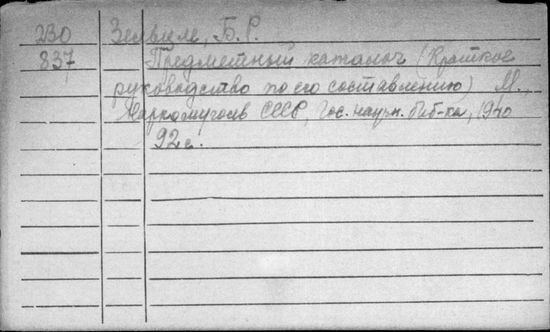 230 Зельвуле, Б. Р.
837 Предметный каталог (Краткое
руководство по его составлению) М.,
Наркомуголь СССР, Гос. научн. биб-ка, 1940
92 с.